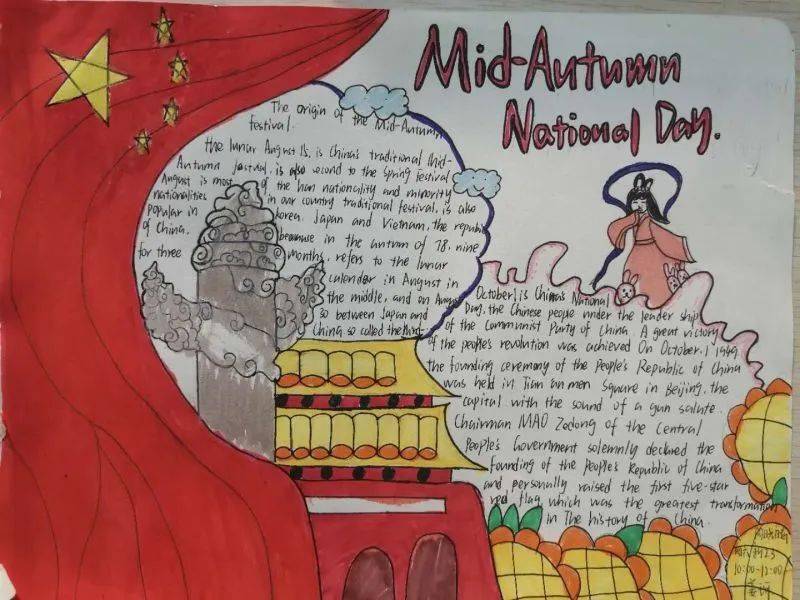 Mid-Autumn
National Day.
The origin of the Mid-Autumn
festival.
the lunar August 15, is China's traditional Mid-
Autumn festival, is also second to the Spring festival
August is most of the han nationality and minority
nationalities in our country traditional festival, is also
popular in korea, Japan and Vietnam, the republic
of China, because in the autumn of 78, nine
for three months, refers to the lunar
calendar in August in
the middle, and on August
so between Japan and
China, so called the third
October 1 is China's National
Day, the Chinese people under the leader ship
of the Communist Party of China. A great victory
of the people's revolution was achieved On October, 1 1949
the founding ceremony of the People's Republic of China
was held in Tian an men Square in Beijing, the
capital, with the sound of a gun salute.
Chairman MAO Zedong of the Central
People's Government solemnly declared the
founding of the People's Republic of China
and personally raised the first five-star
red flag, which was the greatest transformation
in The history of China.
10:00-12:00